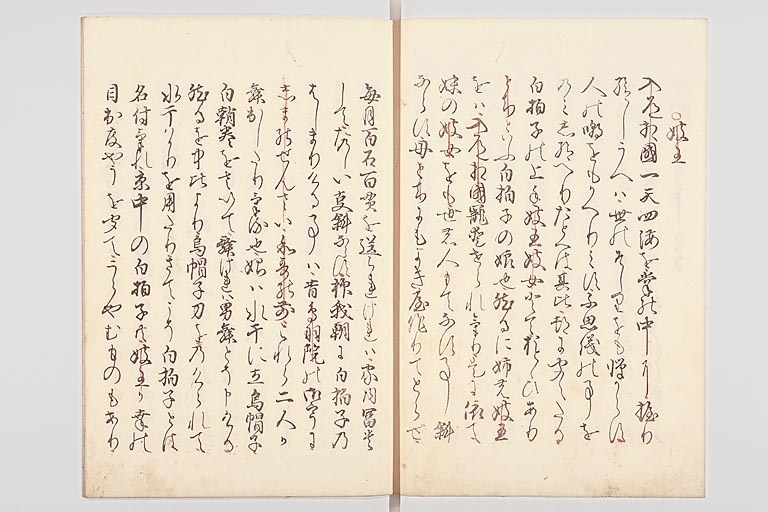 ○妓王
入道相國一天四海を掌の中に握り
給しうへハ世のそしりをも憚らす
人の嘲をもかへりみす不思儀の事を
のみし給へりたとへは其比都に聞えたる
白拍子の上手妓王妓女とておとゝひあり
とちといふ白拍子の娘也然るに姉の妓王
をハ入道相國寵愛せられ
妹の妓女をも世の人もてなす事斜
ならす母とちにもよき屋作りてとらせ
毎月百石百貫を送られけれハ家内冨貴
してたのしい事斜ならす抑我朝に白拍子の
はしまりける事ハ昔鳥羽院の御宇に
しまのせんさいわかのまへこれら二人か
舞出したりける也始ハ水干に立烏帽子
白鞘巻をさいて舞けれハ男舞とそ申ける
然るを中比より烏帽子刀をのけられて
水干はかりを用たりさてこそ白拍子とは
名付けれ京中の白拍子共妓王か幸の
目出度やうを聞てうらやむものもあり